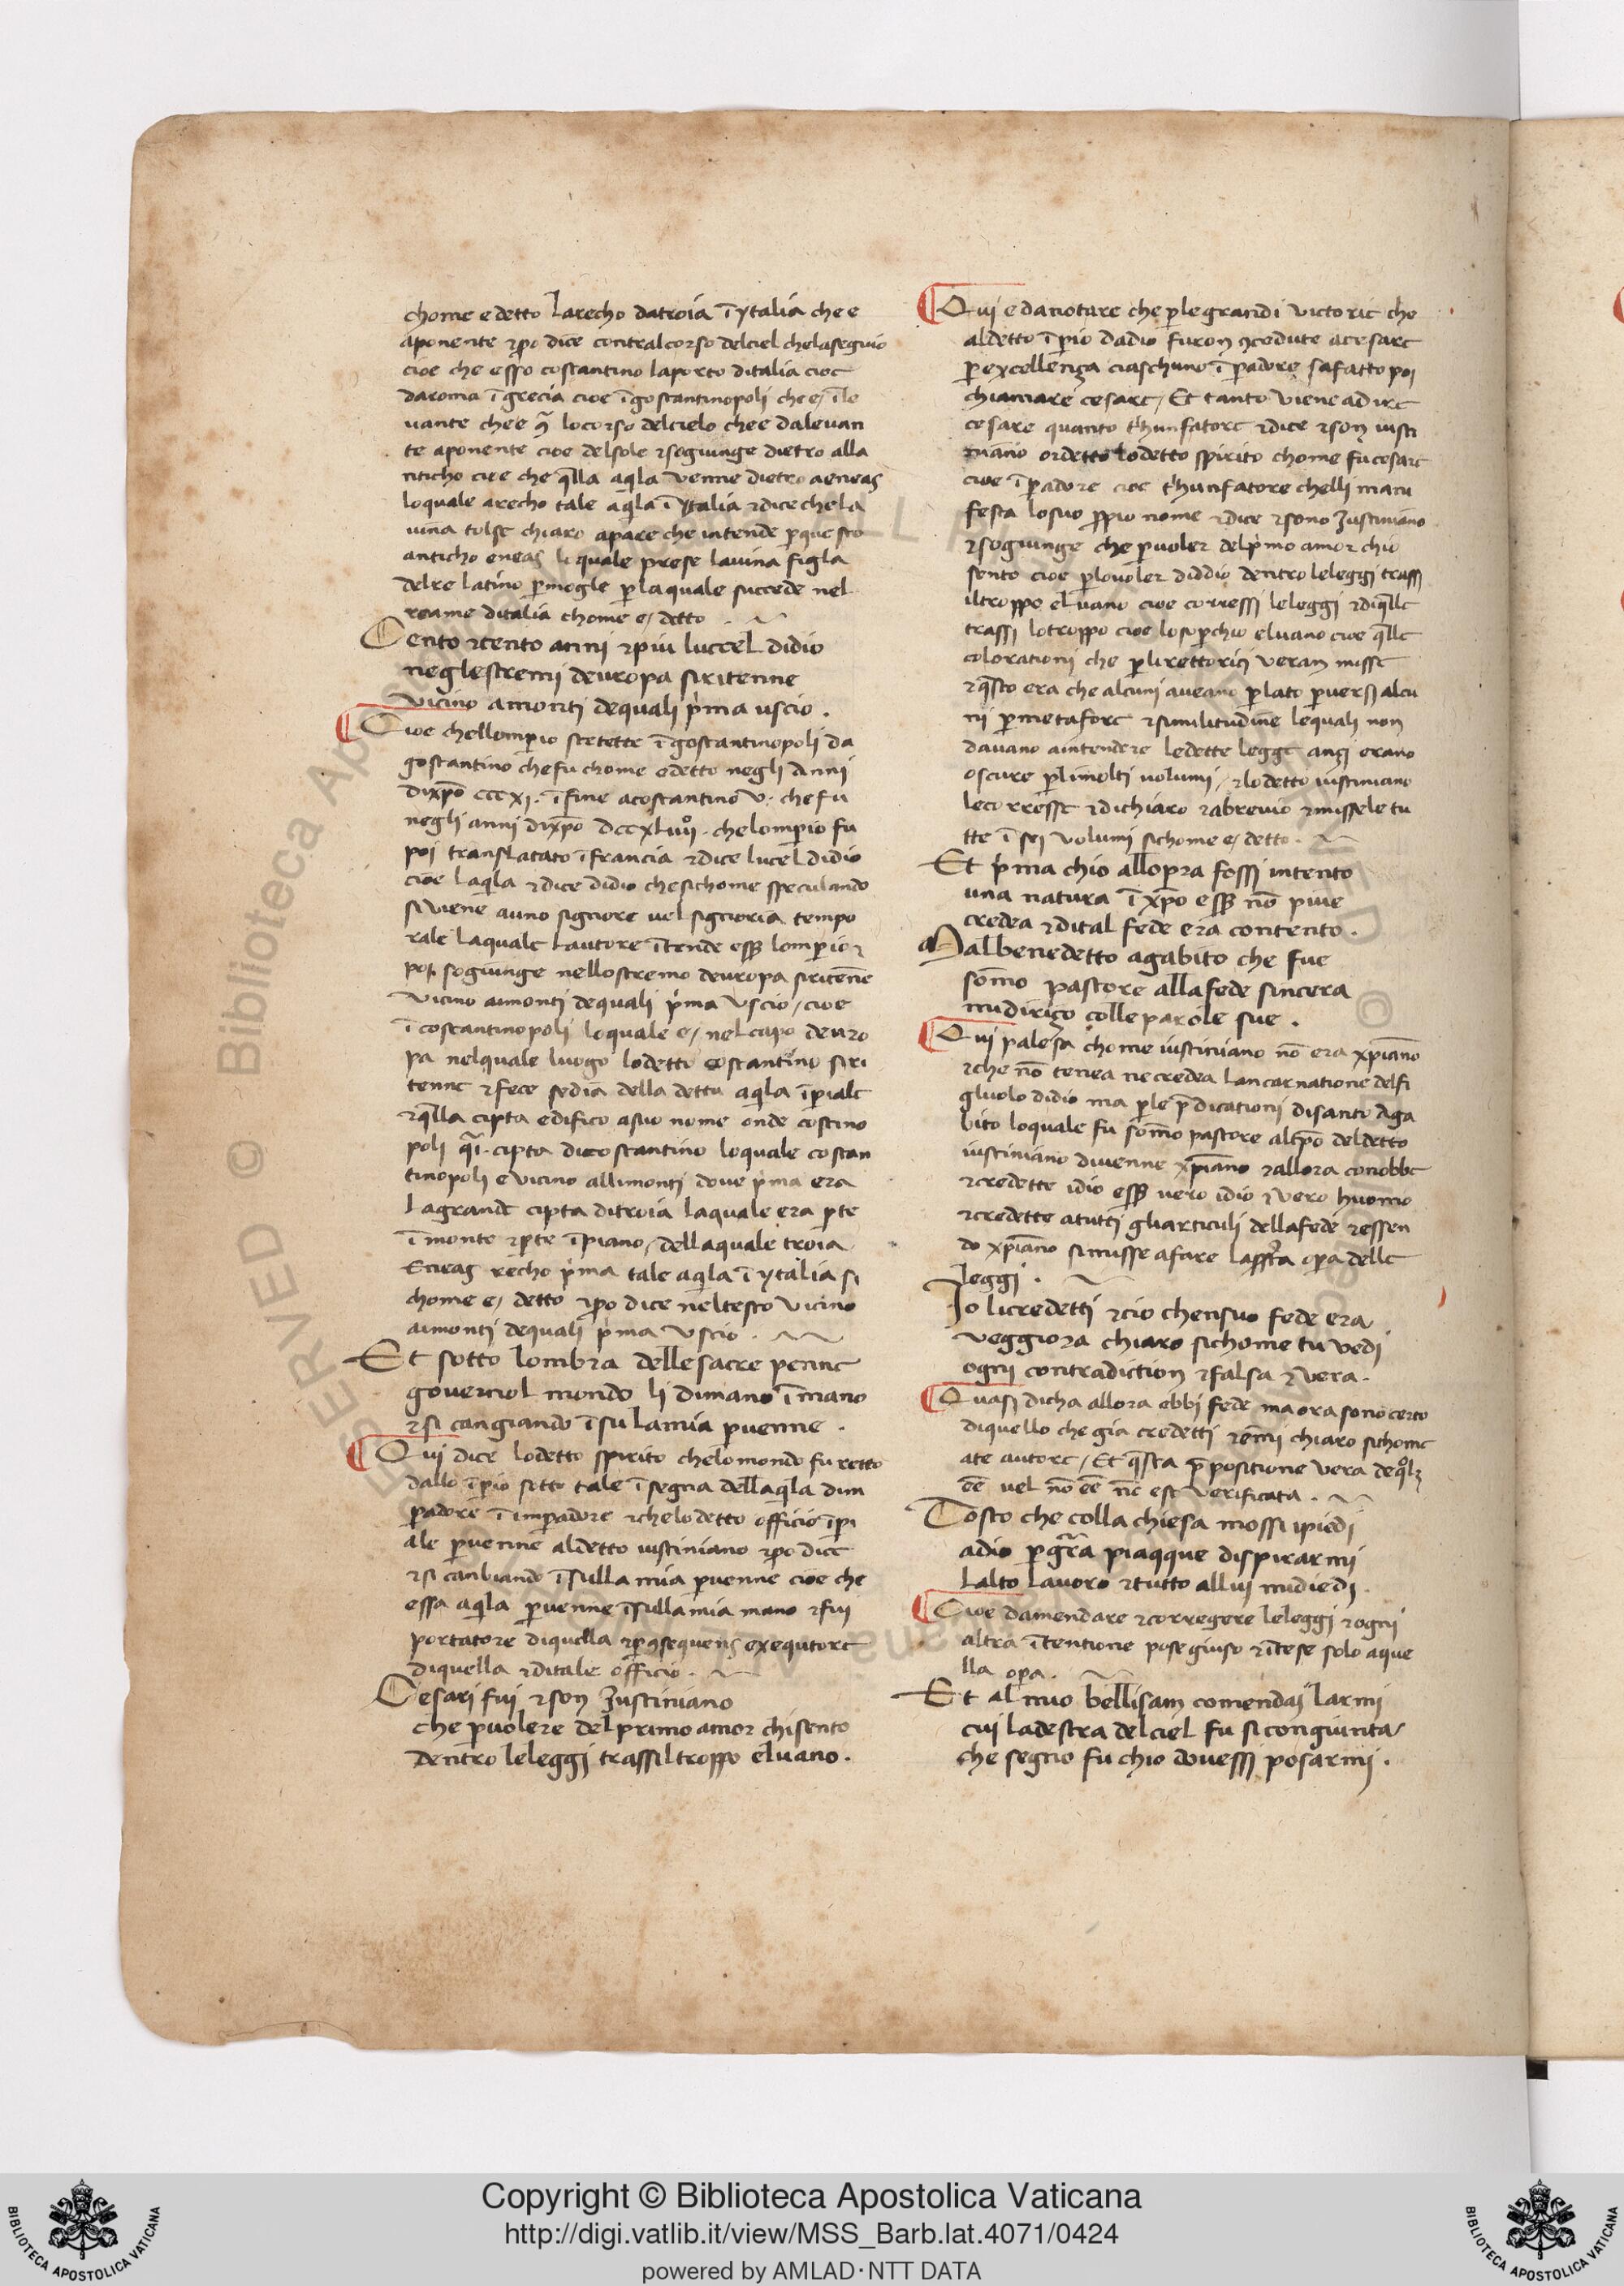 chome e detto larecho datroia ī ytalia che e
aponente ꝛpo dice contralcorso delciel chelaseguio
cioe che esso costantino laporto ditalia cioe
daroma ī grecia cioe ī gostantinopoli che e/ ī le
uante chee ꝯ locorso delcielo chee daleuan
te aponente cioe delsole ꝛsogiunge dietro alla
nticho cioe che q̄lla aq̄la venne dietro aeneas
loquale arecho tale aq̄la ī ytalia ꝛdice chela
uina tolse chiaro apare che intende ꝑque sto
anticho eneas lo quale prese lauina figla
delre latino ꝑmogle ꝑ laquale succede nel
reame ditalia chome e/ detto .
Cento ꝛcento anni ꝛpiu luccel didio
neglestremi deuropa siritenne
vicino amonti dequali pͥma uscio .
Cioe chellomꝑio stetette ī gostantinopoli da
gostantino chefu chome edetto negli anni
dixp̄o cccxj. īfine acostantino v. che fu
negli anni dixp̄o dccxluiiͦ . chelomꝑio fu
poi translatato ī francia ꝛdice lucel didio
cioe laq̄la ꝛdice didio chesichome speculando
si viene auno signore uel signoria tempo
rale laquale lautore ītende ess̄ lomꝑio ꝛ
poi sogiunge nellostremo deuropa siritēne
vicino aimonti dequali pͥma vscio / cioe
ī costantinopoli loquale e/ nel capo deuro
pa nelquale luogo lodetto costantino siri
tenne ꝛfece sedia della detta aq̄la īꝑiale
ꝛq̄lla cipta edifico asuo nome onde costino
poli q̄i. cipta dicostantino loquale costan
tinopoli e vicino allimonti doue pͥma era
lagrande cipta ditroia laquale era ꝑte
ī monte ꝛꝑte ī piano / dellaquale troia
Eneas recho pͥma tale aq̄la ī ytalia si
chome e/ detto ꝛpo dice neltesto vicino
aimonti dequali pͥma vscio .
Et sotto lombra dellesacre penne
gouernol mondo li dimano ī mano
ꝛsi cangiando ī su lamia ꝑuenne .
Qui dice lodetto spirito chelo mondo fu retto
dallo īꝑio sotto tale ī segna dellaq̄la dim
ꝑadore ī imꝑadore ꝛchelodetto officio īꝑi
ale ꝑuenne aldetto iustiniano ꝛpo dice
ꝛsi canbiando ī sulla mia ꝑuenne cioe che
essa aq̄la ꝑuenne ī sullamia mano ꝛfui
portatore diquella ꝛꝑ ꝯsequens exequtore
diquella ꝛditale officio .
Cesari fui ꝛson Justiniano
che ꝑuolere del primo amor chisento
dentro leleggi trassiltroppo eluano .
Qui e danotare che ꝑlegrandi victorie che
aldetto īꝑio dadio furon ꝯcedute acesare
ꝑexcellenza ciaschuno īꝑadore safatto poi
chiamare cesare / Et tanto viene adire
cesare quanto t'hunfatore ꝛdice ꝛson iusti
niano ordetto lodetto spirito chome fu cesare
cioe īꝑadore cioe t'hunfatore chelli mani
festa losuo ꝓpio nome ꝛdice ꝛsono Justiniano
ꝛsogiunge che ꝑuoler delpͥmo amor chio
sento cioe ꝑlouoler diddio dentro leleggi trassi
iltroppo el uano cioe corressi leleggi ꝛdiq̄lle
trassi lotroppo cioe losoꝑchio eluano cioe q̄lle
colorationi che ꝑlirettorici veran misse
ꝛq̄sto era che alcuni aueano ꝑlato ꝑuersi alcu
ni ꝑmetafore ꝛsimilitudine lequali non
dauano aintendere ledette legge anzi erano
oscure ꝑlimolti uolumi / ꝛlodetto iustiniano
lecorresse ꝛdichiaro ꝛabreuio ꝛmissele tu
tte ī sei volumi sichome e/ detto .
Et pͥma chio allopera fossi intento
una natura ī xp̄o ess̄ nō piue
credea ꝛdital fede era contento .
Mal benedetto agabito che fue
som̄o pastore alla fede sincera
midirizo colle parole sue .
Qui palesa chome iustiniano nō era xp̄iano
ꝛche nō tenea ne credea lancarnatione delfi
gluolo didio ma ꝑle p̄dicationi disanto Aga
bito loquale fu som̄o pastore altp̄o deldetto
iustiniano diuenne xp̄iano ꝛallora conobbe
ꝛcredette idio ess̄ uero idio ꝛvero huomo
ꝛcredette atutti gliarticuli dellafede ꝛessen
do xp̄iano simisse afare lapsc̄ta opa delle
leggi .
Io licredetti ꝛcio chensuo fede era
veggiora chiaro sichome tu vedi
ogni contradiction ꝛfalsa ꝛvera .
Quasi dicha allora ebbi fede ma ora sono certo
diquello che gia credetti ꝛemmi chiaro sichome
ate autore / Et q̄sta ꝓpositione vera deq̄lꝫ
eē vel nō eē nc̄ est verificata .
Tosto che colla chiesa mossi ipiedi
adio ꝑ gr̄a piaqque dispirarmi
lalto lauoro ꝛtutto allui midiedi .
Cioe damendare ꝛcorregere leleggi ꝛogni
altra ītentione posegiuso ꝛītese solo aque
lla opa .
Et al mio bellisam comendai larmi
cui ladestra delciel fu si congiunta /
che segno fu chio douessi posarmi .
Copyright © Biblioteca Apostolica Vaticana
http://digi.vatlib.it/view/MSS_Barb.lat.4071/0424
powered by AMLAD·NTT DATA
BIBLIOTECA APOSTOLICA VATICANA
BIBLIOTECA APOSTOLICA VATICANA